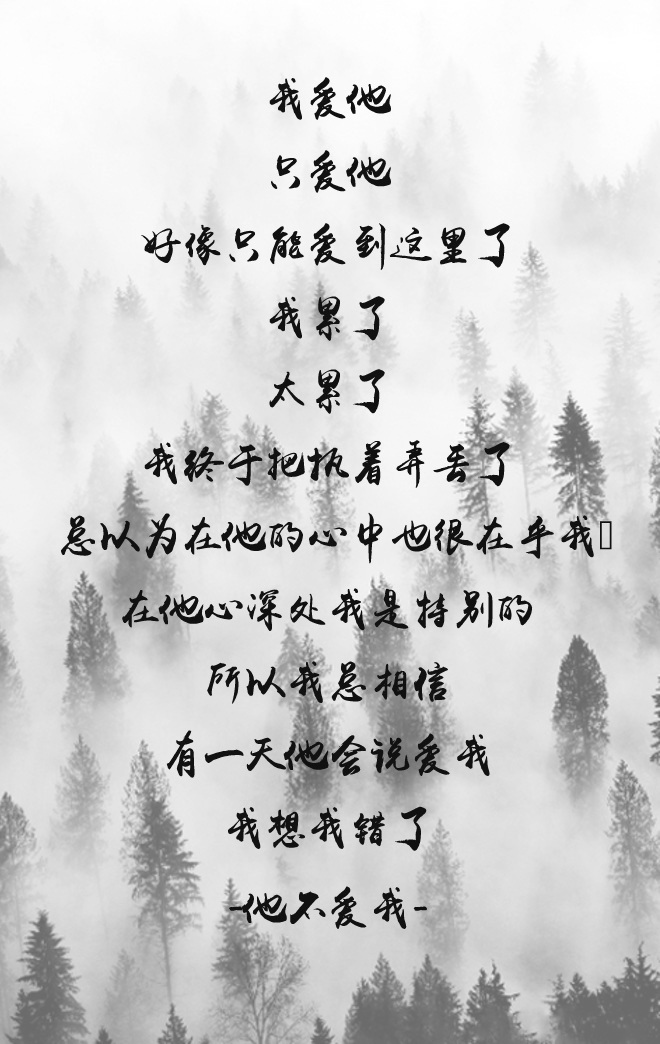 我爱他
只爱他
好像只能爱到这里了
我累了
太累了
我终于把执着弄丢了
总以为在他的心中也很在乎我
在他心深处我是特别的
所以我总相信
有一天他会说爱我
我想我错了
-他不爱我-